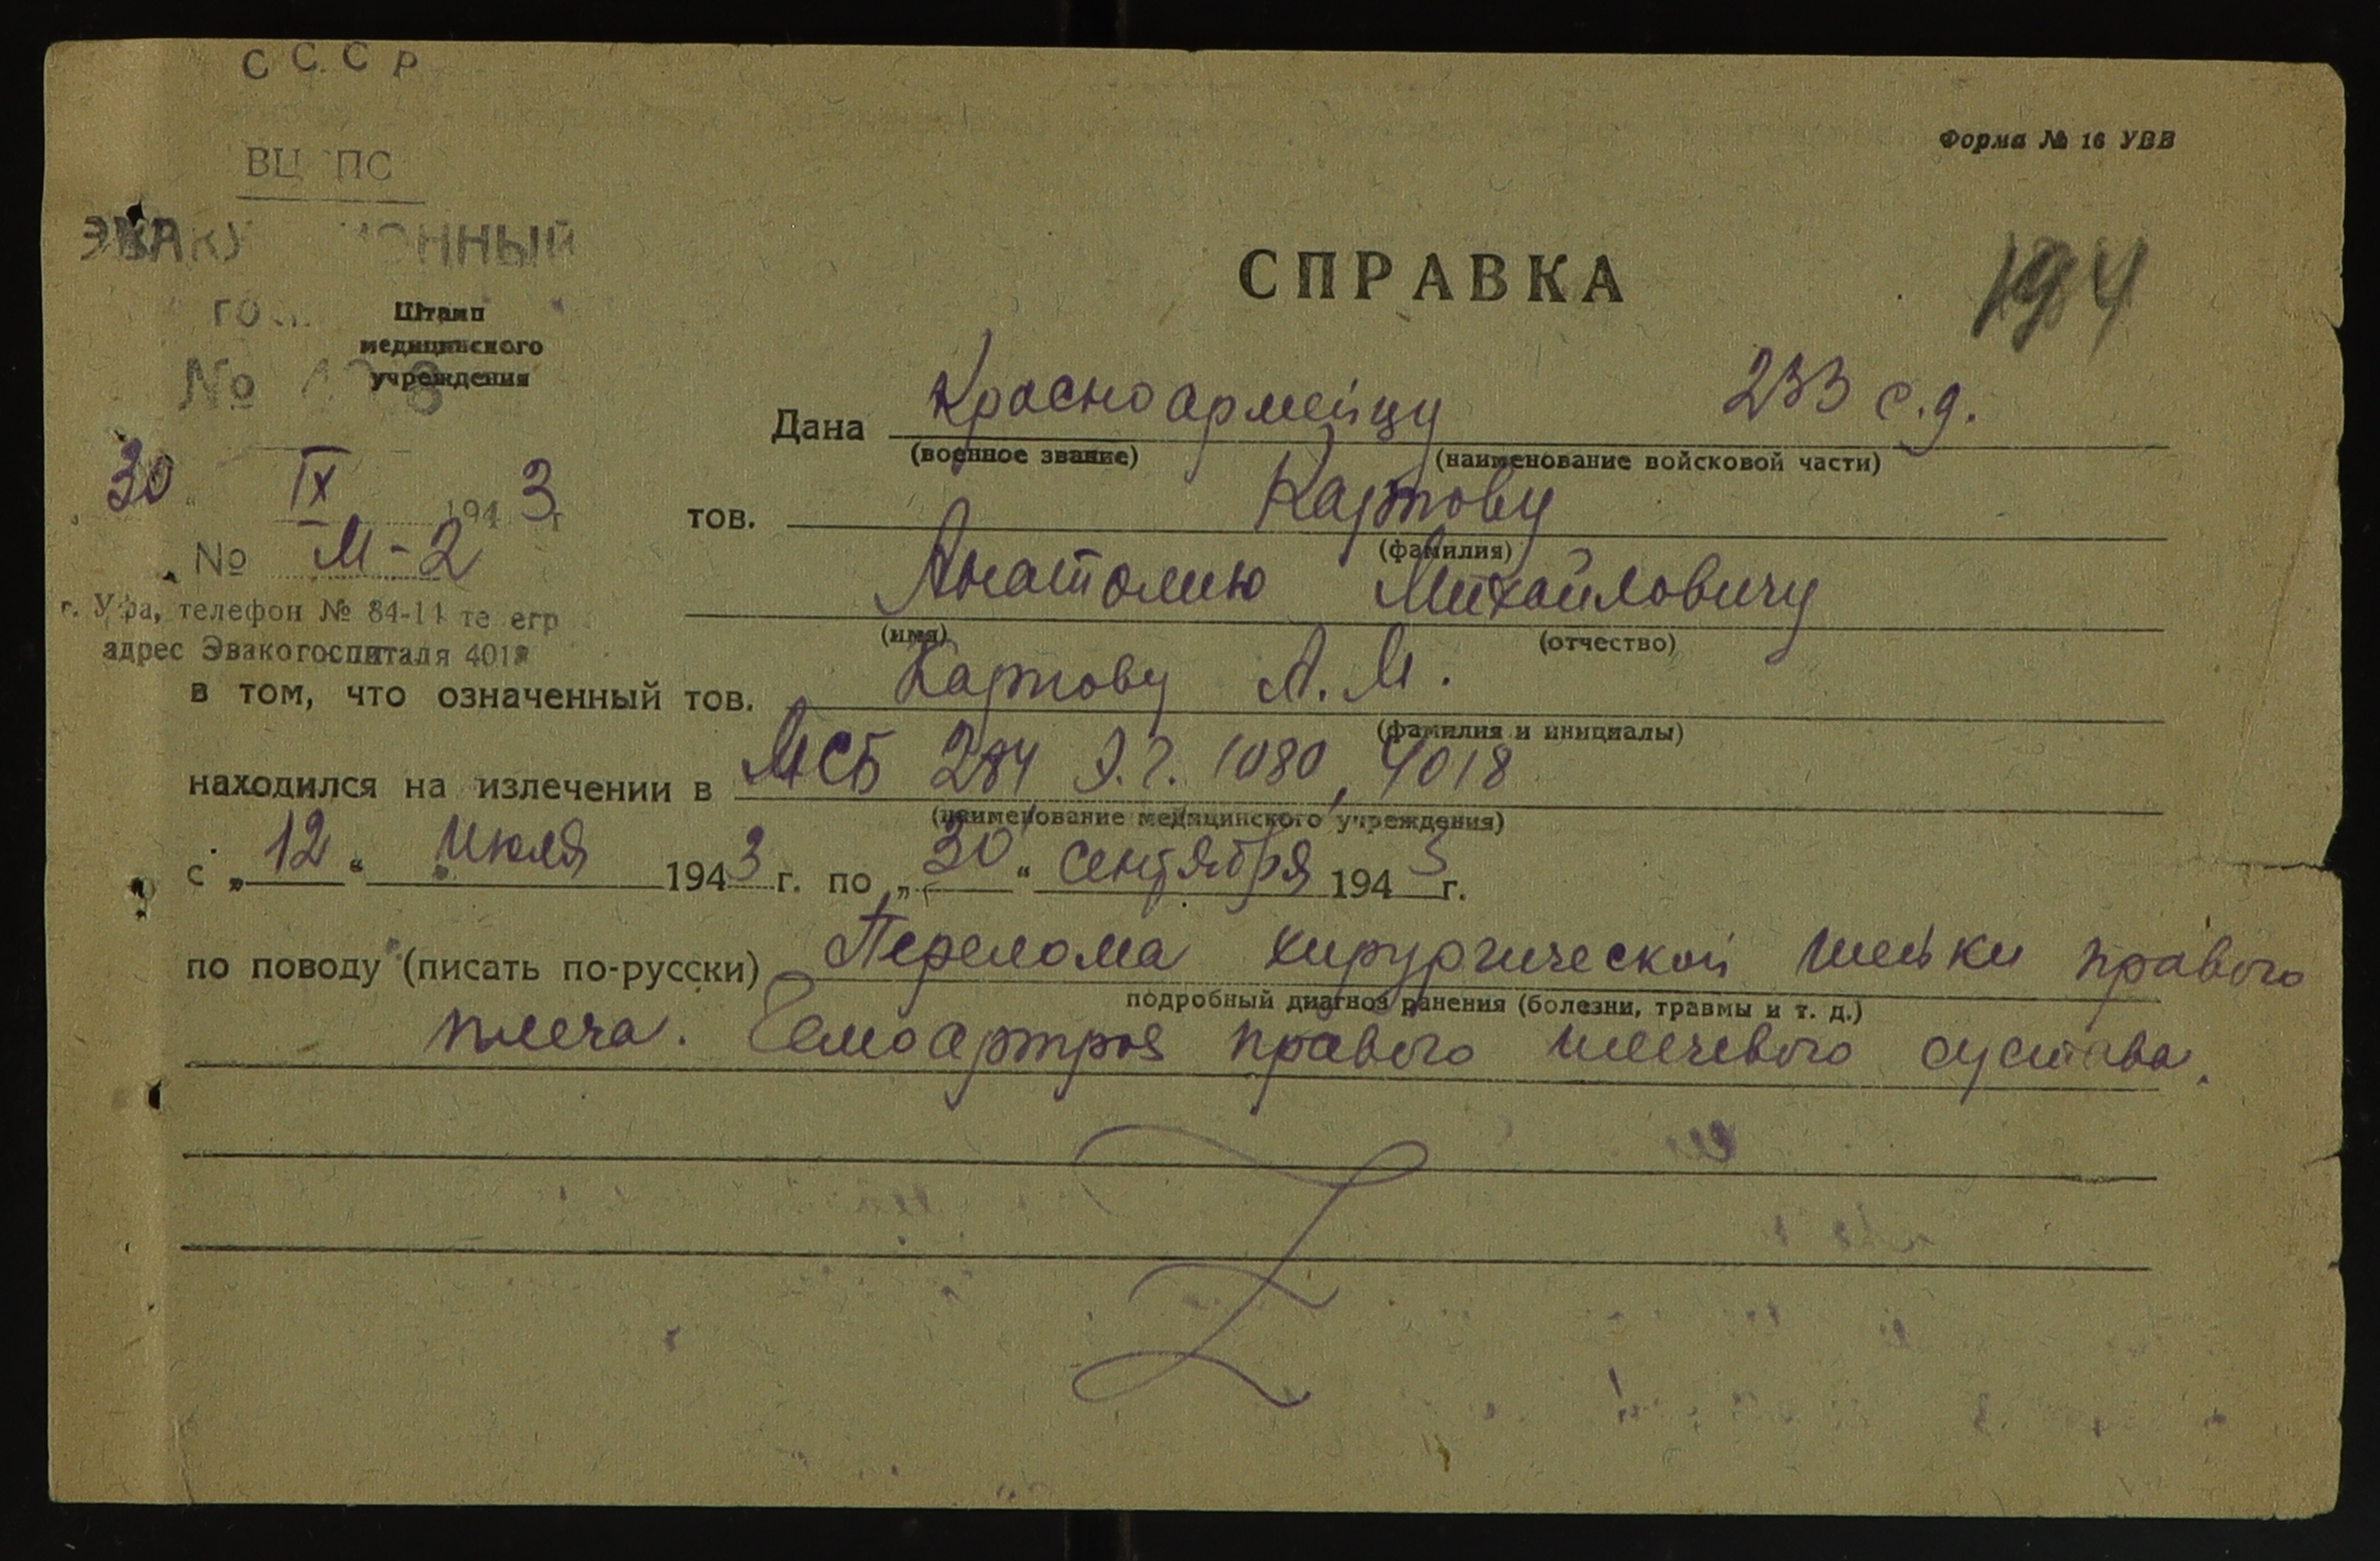 СССР
ВЦ ПС
Форма № 16 УВВ
СПРАВКА
194
Штамп
медицинского
учреждения
№
Дана Красноармейцу 233 с.д.
(военное звание) (наименование войсковой части)
30 IX 1943 г
тов. Картову
(фамилия)
№ М-2
Анатолию Михайловичу
(имя) (отчество)
г. Уфа, телефон № 84-11 те егр
адрес Эвакогоспиталя 4018
в том, что означенный тов. Картову А.М.
(фамилия и инициалы)
находился на излечении в МСБ 284 Э.г. 1080, 4018
(наименование медицинского учреждения)
с „12“ Июля 1943 г. по „30“ сентября 1943 г.
по поводу (писать по-русски) Перелома хирургической шейки правого
подробный диагноз ранения (болезни, травмы и т. д.)
плеча. Гемоартроз правого плечевого сустава.